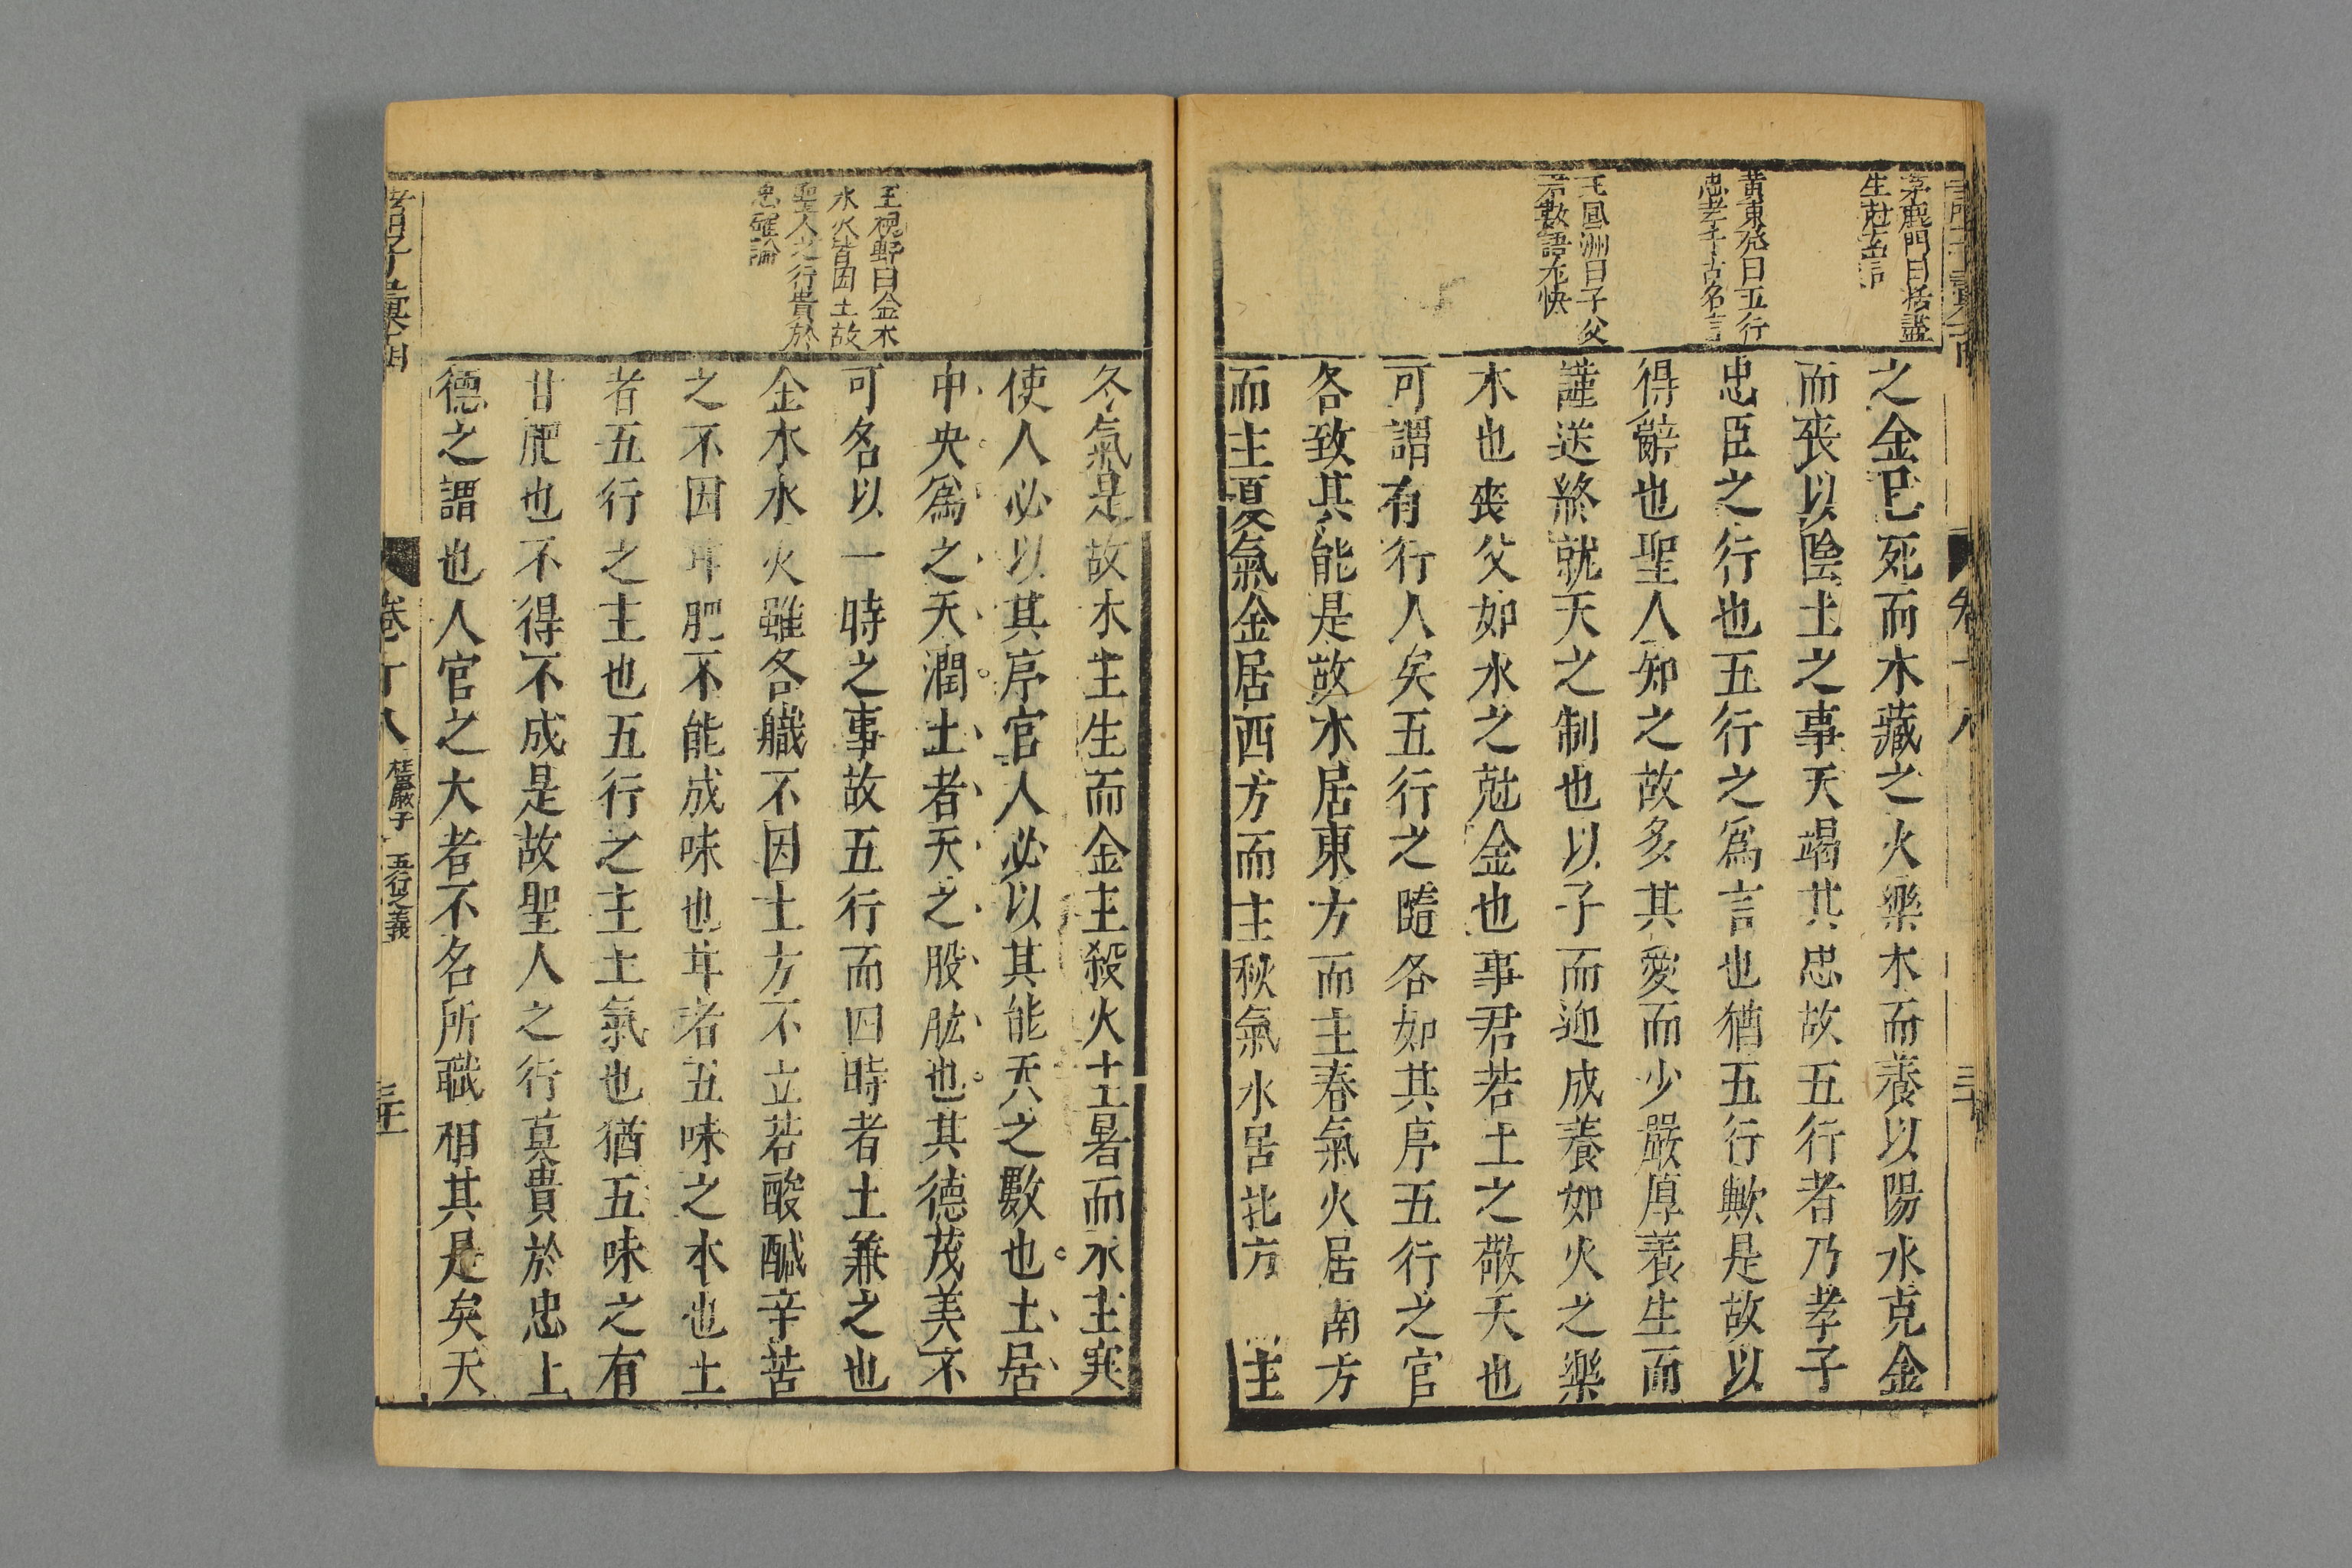 茅鹿門曰括盡
生尅
黃東發曰五行
忠孝千古名言
王鳳洲曰子父
君數語尤快
之金已死而木藏之火樂木而養以陽水克金
而䘮以陰土之事天竭其忠故五行者乃孝子
忠臣之行也五行之為言也猶五行歟是故以
得辭也聖人知之故多其愛而少嚴厚養生而
謹送終就天之制也以子而迎成養如火之樂
木也䘮父如水之尅金也事君若土之敬天也
可謂有行人矣五行之隨各如其序五行之官
各致其能是故木居東方而主春氣火居南方
而主夏氣金居西方而主秋氣水居北方 主
王槐野曰金木
水火皆因土故
聖人之行貴於
忠確論
冬氣是故木主生而金主殺火主暑而水主寒
使人必以其序官人必以其能天之數也土居
中央爲之天潤土者天之股肱也其德茂美不
可名以一時之事故五行而四時者土兼之也
金木水火雖各職不因土方不立若酸鹹辛苦
之不因甘肥不能成味也甘者五味之本也土
者五行之主也五行之主土氣也猶五味之有
甘肥也不得不成是故聖人之行莫貴於忠土
德之謂也人官之大者不名所職相其是矣天
卷十八 桂巖子 五行之義